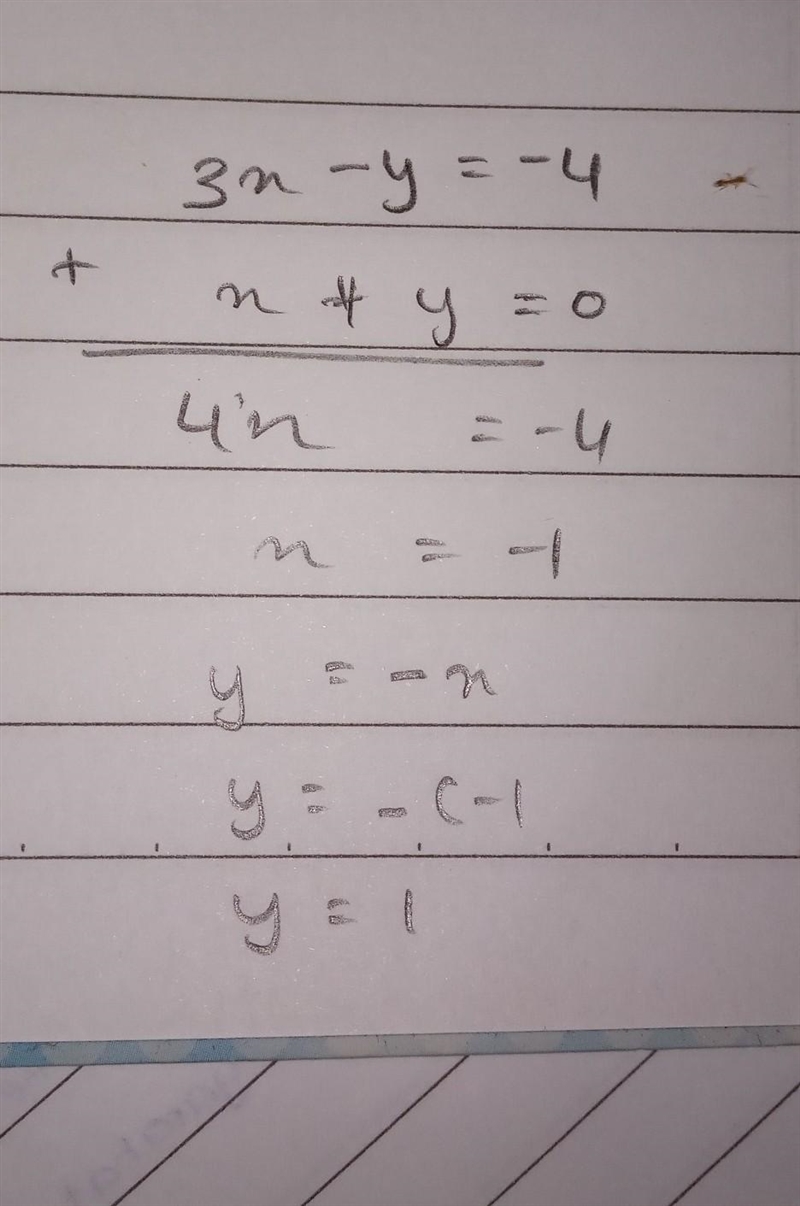 3x - y = -4
+ x + y = 0
4x = -4
x = -1
y = -x
y = -(-1
y = 1